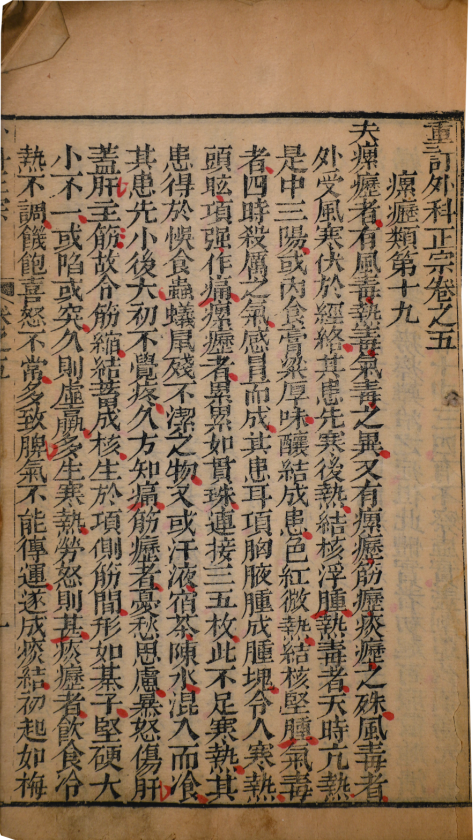 重訂外科正宗卷之五
瘰癧類第十九
夫瘰癧者有風毒熱毒氣毒之異又有瘰癧筋癧痰癧之殊風毒者
外受風寒伏於經絡其患先寒後熱結核浮腫熱毒者天時亢熱
是中三陽或內食膏粱厚味釀結成患色紅微熱結核堅腫氣毒
者四時殺厲之氣感冒而成其患耳項胸腋腫成腫塊令人寒熱
頭眩項强作痛瘰癧者累累如貫珠連接三五枚此不足寒熱其
患得於悞食蟲蟻鼠殘不潔之物又或汗液宿茶陳水混入而飡
其患先小後大初不覺疼久方知痛筋癧者憂愁思慮暴怒傷肝
蓋肝主筋故令筋縮結蓄成核生於項側筋間形如棊子堅硬大
小不一或陷或突久則虛羸多生寒熱勞怒則甚痰癧者飲食冷
熱不調饑飽喜怒不常多致脾氣不能傳運遂成痰結初起如梅